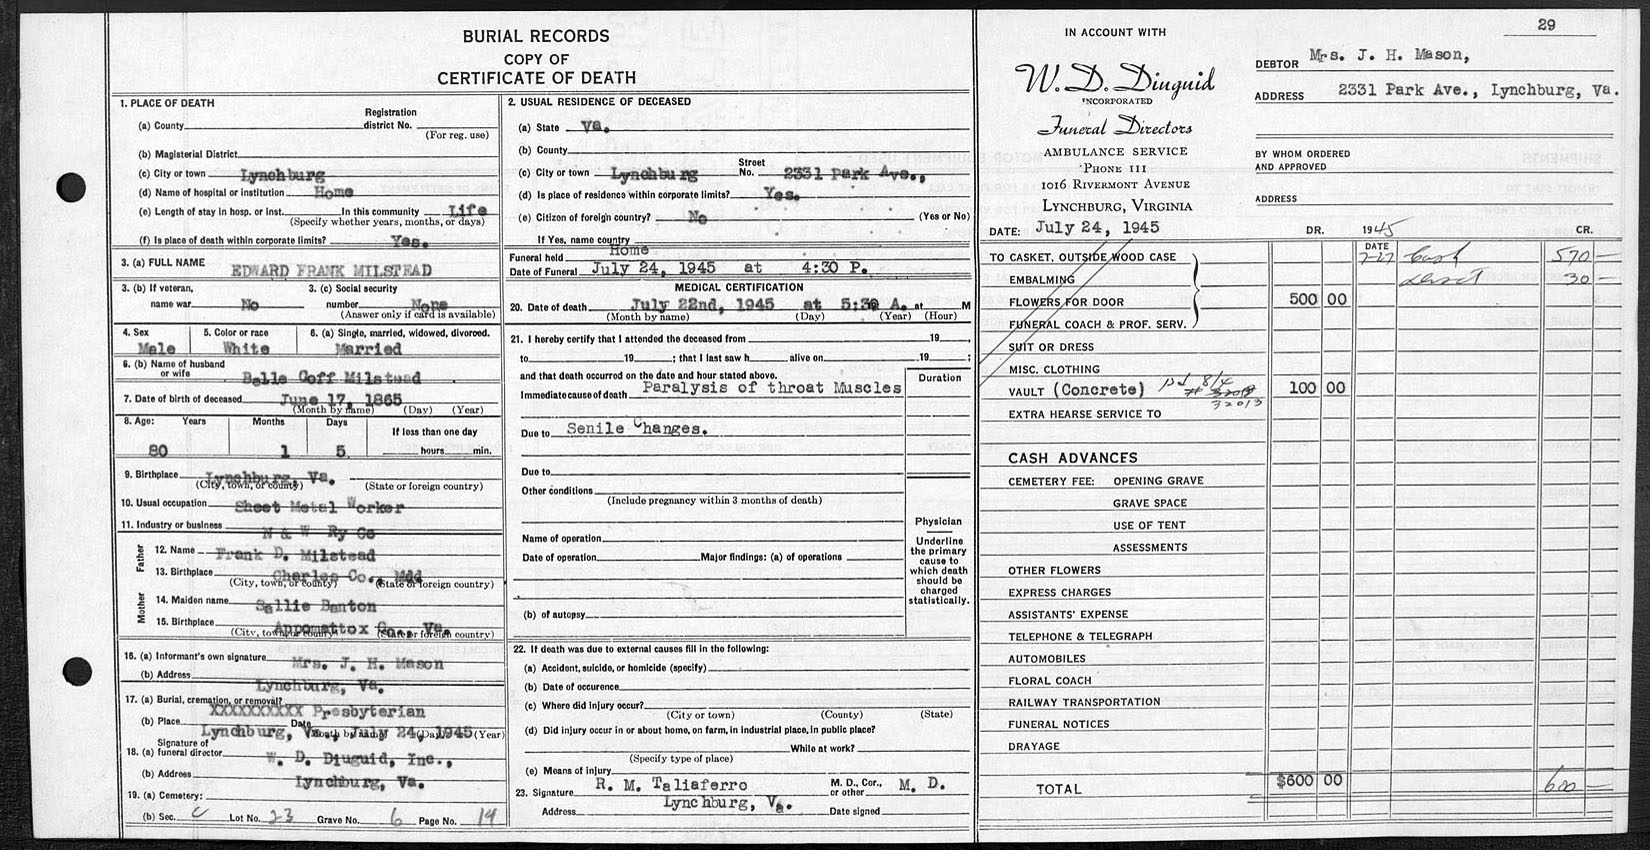 BURIAL RECORDS
COPY OF
CERTIFICATE OF DEATH
1. PLACE OF DEATH
Registration
(a) County district No.
(For reg. use)
(b) Magisterial District
(c) City or town Lynchburg
(d) Name of hospital or institution Home
(e) Length of stay in hosp. or inst. In this community Life
(Specify whether years, months, or days)
(f) Is place of death within corporate limits? Yes.
3. (a) FULL NAME EDWARD FRANK MILSTEAD
3. (b) If veteran, 3. (c) Social security
name war No number None
(Answer only if card is available)
4. Sex 5. Color or race 6. (a) Single, married, widowed, divorced.
Male White Married
6. (b) Name of husband
or wife Belle Goff Milstead
7. Date of birth of deceased June 17, 1865
(Month by name) (Day) (Year)
8. Age: Years Months Days If less than one day
80 1 5 hours min.
9. Birthplace Lynchburg, Va.
(City, town, or county) (State or foreign country)
10. Usual occupation Sheet Metal Worker
11. Industry or business N & W Ry Co
Father
12. Name Frank D. Milstead
13. Birthplace Charles Co., Mdd
(City, town, or county) (State or foreign country)
Mother
14. Maiden name Sallie Banton
15. Birthplace Appomattox Co., Va.
(City, town, or county) (State or foreign country)
16. (a) Informant's own signature Mrs. J. H. Mason
(b) Address Lynchburg, Va.
17. (a) Burial, cremation, or removal?
XXXXXXXXXX Presbyterian
(b) Place Date
Lynchburg, Va., July 24, 1945
(Month by name) (Day) (Year)
Signature of
18. (a) funeral director W. D. Diuguid, Inc.,
(b) Address Lynchburg, Va.
19. (a) Cemetery:
(b) Sec. C Lot No. 23 Grave No. 6 Page No. 19
2. USUAL RESIDENCE OF DECEASED
(a) State Va.
(b) County
Street
(c) City or town Lynchburg No. 2331 Park Ave.,
(d) Is place of residence within corporate limits? Yes.
(e) Citizen of foreign country? No (Yes or No)
If Yes, name country
Funeral held Home
Date of Funeral July 24, 1945 at 4:30 P.
MEDICAL CERTIFICATION
20. Date of death July 22nd, 1945 at 5:30 A. at M
(Month by name) (Day) (Year) (Hour)
21. I hereby certify that I attended the deceased from 19 ,
to 19 ; that I last saw h alive on 19 ;
and that death occurred on the date and hour stated above. Duration
Immediate cause of death Paralysis of throat Muscles
Due to Senile Changes.
Due to
Other conditions
(Include pregnancy within 3 months of death)
Physician
Underline
the primary
cause to
which death
should be
charged
statistically.
Name of operation
Date of operation Major findings: (a) of operations
(b) of autopsy
22. If death was due to external causes fill in the following:
(a) Accident, suicide, or homicide (specify)
(b) Date of occurence
(c) Where did injury occur?
(City or town) (County) (State)
(d) Did injury occur in or about home, on farm, in industrial place, in public place?
While at work?
(Specify type of place)
(e) Means of injury
23. Signature R. M. Taliaferro M. D., Cor., or other M. D.
Address Lynchburg, Va. Date signed
29
IN ACCOUNT WITH
W. D. Diuguid
INCORPORATED
Funeral Directors
AMBULANCE SERVICE
PHONE 111
1016 RIVERMONT AVENUE
LYNCHBURG, VIRGINIA
DEBTOR Mrs. J. H. Mason,
ADDRESS 2331 Park Ave., Lynchburg, Va.
BY WHOM ORDERED
AND APPROVED
ADDRESS
DATE: July 24, 1945 DR. 1945 CR.
DATE
TO CASKET, OUTSIDE WOOD CASE 7-27 Cash 570 —
EMBALMING 30 —
FLOWERS FOR DOOR 500 00
FUNERAL COACH & PROF. SERV.
SUIT OR DRESS
MISC. CLOTHING
VAULT (Concrete) pd 8/4 # 32013 100 00
EXTRA HEARSE SERVICE TO
CASH ADVANCES
CEMETERY FEE: OPENING GRAVE
GRAVE SPACE
USE OF TENT
ASSESSMENTS
OTHER FLOWERS
EXPRESS CHARGES
ASSISTANTS' EXPENSE
TELEPHONE & TELEGRAPH
AUTOMOBILES
FLORAL COACH
RAILWAY TRANSPORTATION
FUNERAL NOTICES
DRAYAGE
TOTAL $600 00 600 —